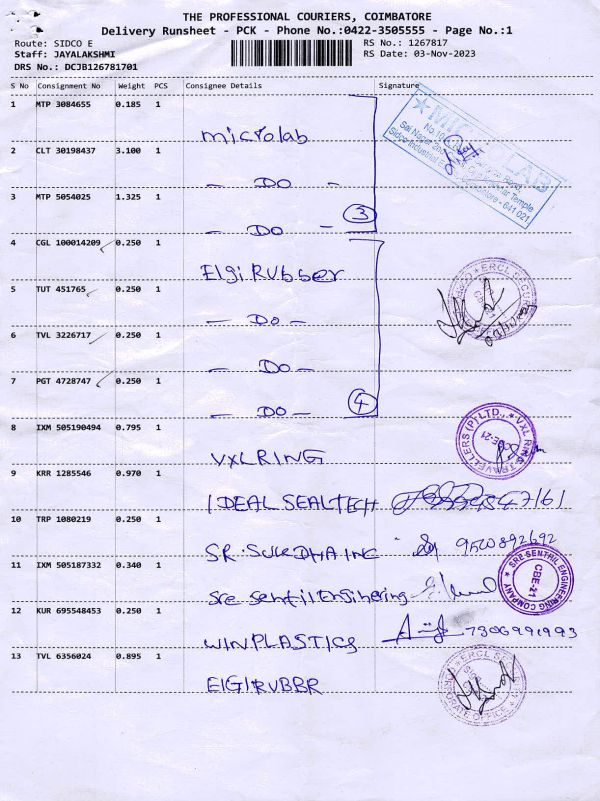 THE PROFESSIONAL COURIERS, COIMBATORE
Delivery Runsheet - PCK - Phone No.:0422-3505555 - Page No.:1
Route: SIDCO E
RS No.: 1267817
Staff: JAYALAKSHMI
RS Date: 03-Nov-2023
DRS No.: DCJB126781701
S No Consignment No Weight PCS Consignee Details Signature
1 MTP 3084655 0.185 1
microlab
MICROLAB
2 CLT 30198437 3.100 1
- DO -
3 MTP 5054025 1.325 1
- DO - 3
4 CGL 100014209 0.250 1
Elgi Rubber
5 TUT 451765 0.250 1
- DO -
6 TVL 3226717 0.250 1
- DO -
7 PGT 4728747 0.250 1
- DO - 4
8 IXM 505190494 0.795 1
VXL RING
9 KRR 1285546 0.970 1
IDEAL SEALTECH
10 TRP 1080219 0.250 1
9500892692
11 IXM 505187332 0.340 1
Sre Sentil Enginering
SRE SENTHIL ENGINEERING COMPANY
CBE-21
12 KUR 695548453 0.250 1
WINPLASTICS 7306991993
13 TVL 6356024 0.895 1
ElGIRUBBR